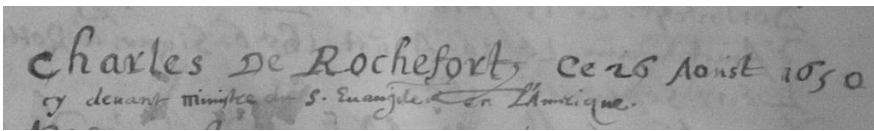 Charles De Rochefort, Ce 26 Aoust 1650
cy deuant ministre du S. Euangile en l'Amerique.